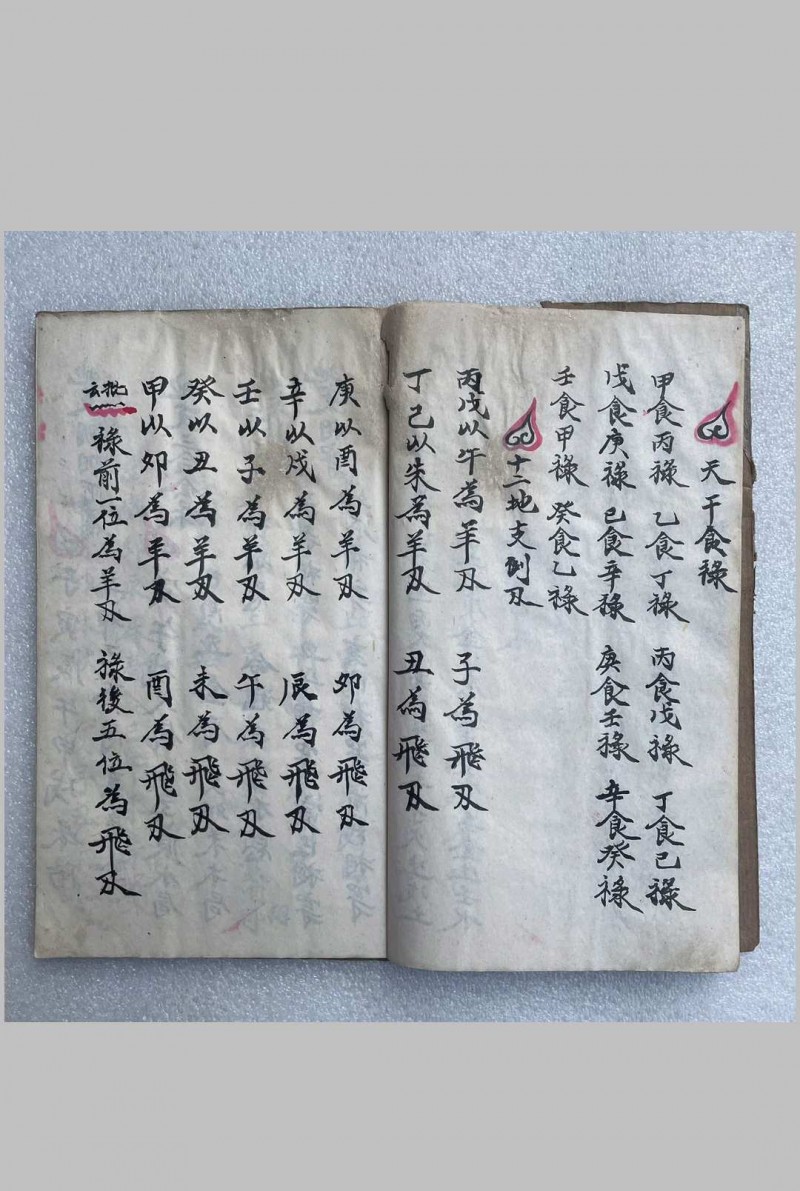 天干食祿
甲食丙祿 乙食丁祿 丙食戊祿 丁食己祿
戊食庚祿 己食辛祿 庚食壬祿 辛食癸祿
壬食甲祿 癸食乙祿
十二地支刞刄
丙戊以午為羊刄 子為飛刄
丁己以未為羊刄 丑為飛刄
庚以酉為羊刄 卯為飛刄
辛以戌為羊刄 辰為飛刄
壬以子為羊刄 午為飛刄
癸以丑為羊刄 未為飛刄
甲以卯為羊刄 酉為飛刄
批云 祿前一位為羊刄 祿後五位為飛刄